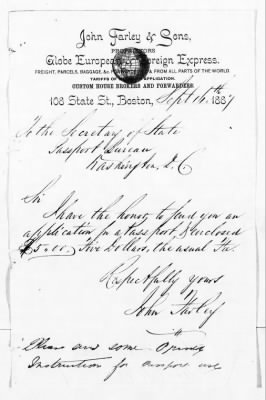 John Farley & Sons,
PROPRIETORS
Globe European & Foreign Express.
FREIGHT, PARCELS, BAGGAGE, &c. FROM ALL PARTS OF THE WORLD.
TARIFFS APPLICATION.
CUSTOM HOUSE BROKERS AND FORWARDERS
108 State St., Boston, Sept 16th 1887
To the Secretary of State
Passport Bureau
Washington, D.C
Sir
I have the honor to send you an
application for a Passport & enclosed
$5.00. Five Dollars, the usual fee.
Respectfully yours
John Farley
send some
Instruction for